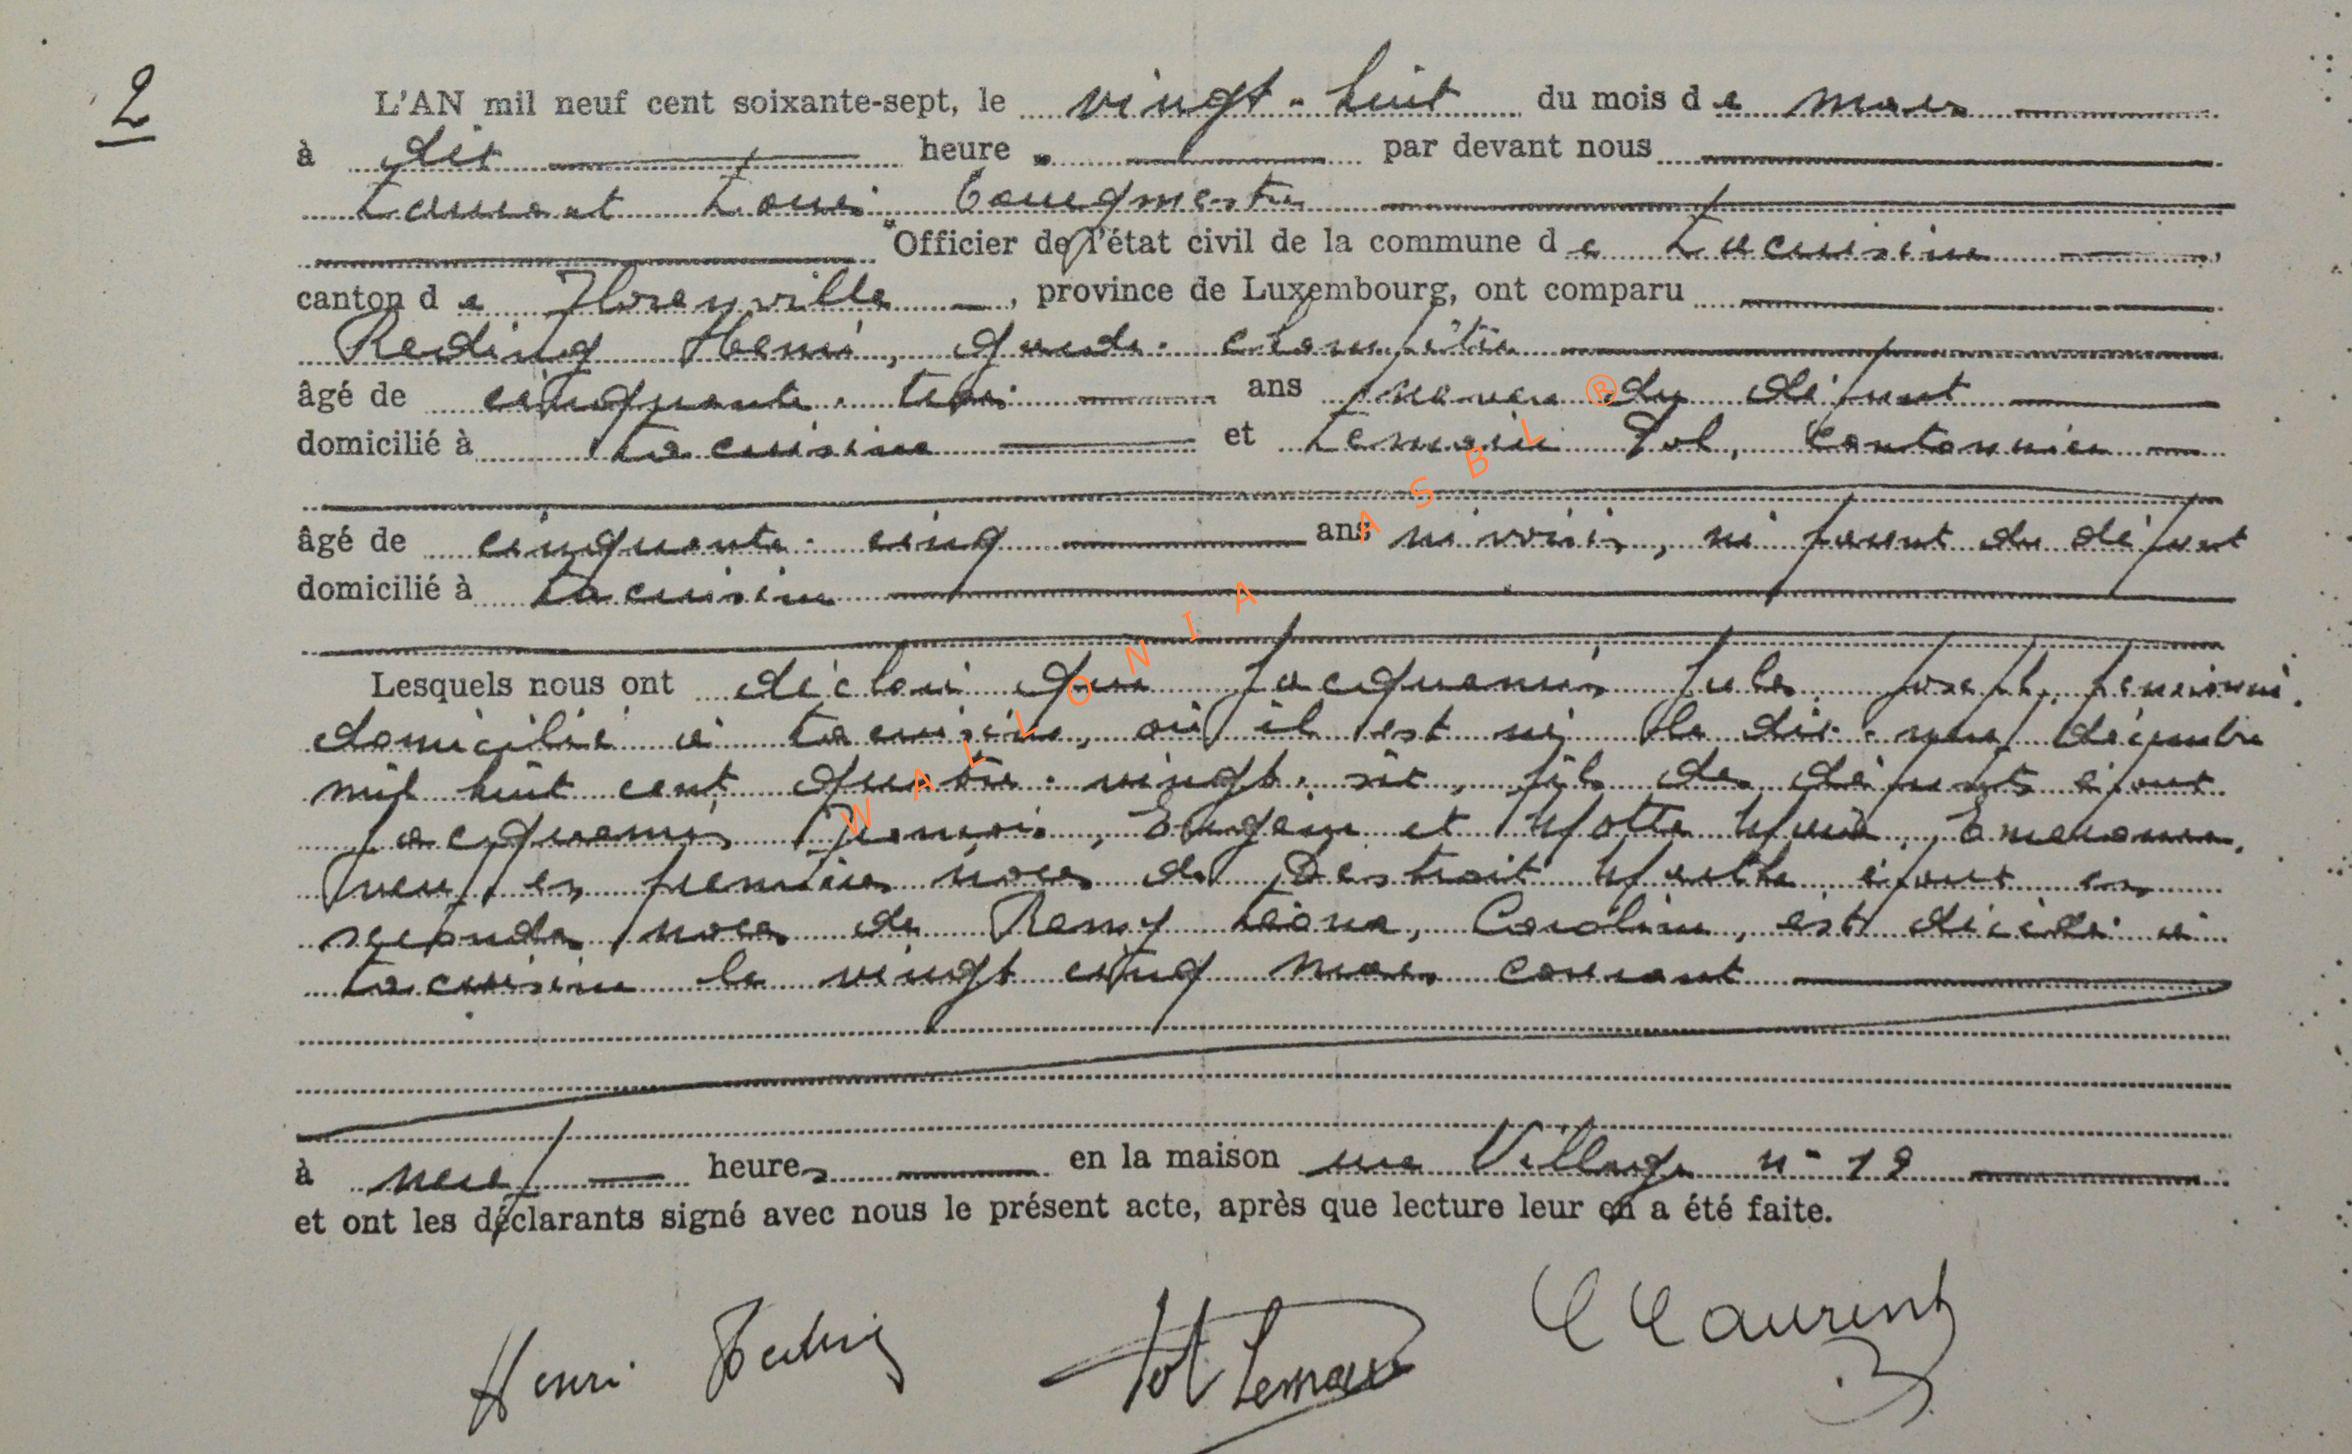 2
L'AN mil neuf cent soixante-sept, le vingt-huit du mois de mars
à dix heure par devant nous
Laurent Louis, bourgmestre
Officier de l'état civil de la commune de Lacuisine,
canton de Florenville, province de Luxembourg, ont comparu
Reding Henri, garde-champêtre
âgé de cinquante-trois ans neveu du défunt
domicilié à Lacuisine et Lemaire Pol, cantonnier
âgé de cinquante-cinq ans ni voisin, ni parent du défunt
domicilié à Lacuisine
Lesquels nous ont déclaré que Jacquemin Jules Joseph, pensionné,
domicilié à Lacuisine, où il est né le dix-neuf décembre
mil huit cent quatre-vingt-six, fils des défunts époux
Jacquemin François, Eugène et Motte Marie, Emerence,
veuf en premières noces de Destrait Marthe époux en
secondes noces de Remy Léona, Caroline, est décédé à
Lacuisine le vingt cinq mars courant
à neuf heures en la maison rue Village n° 12
et ont les déclarants signé avec nous le présent acte, après que lecture leur en a été faite.
Henri Reding Pol Lemaire L Laurent
WALLONIA ASBL ®